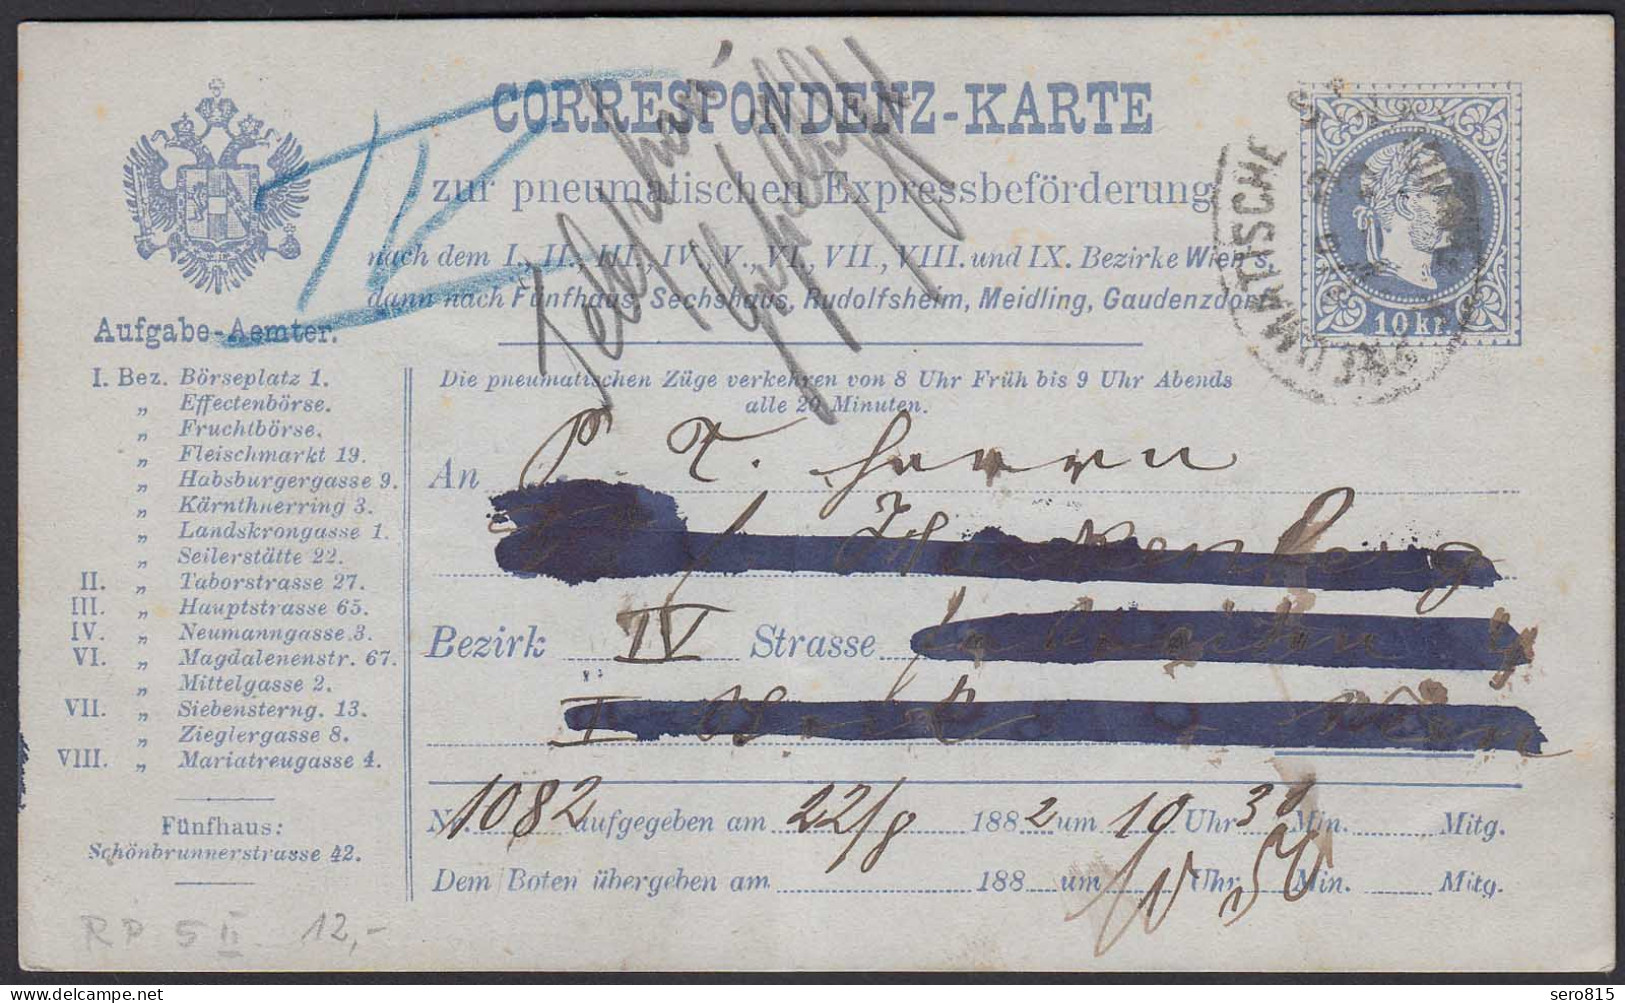 CORRESPONDENZ-KARTE
IV
zur pneumatischen Expressbeförderung
nach dem I., II., III., IV., V., VI., VII., VIII. und IX. Bezirke Wien's
dann nach Fünfhaus, Sechshaus, Rudolfsheim, Meidling, Gaudenzdorf
10 kr.
PNEUMATISCHE
Aufgabe-Aemter.
I. Bez. Börseplatz 1.
„ Effectenbörse.
„ Fruchtbörse.
„ Fleischmarkt 19.
„ Habsburgergasse 9.
„ Kärnthnerring 3.
„ Landskrongasse 1.
„ Seilerstätte 22.
II. „ Taborstrasse 27.
III. „ Hauptstrasse 65.
IV. „ Neumanngasse 3.
VI. „ Magdalenenstr. 67.
„ Mittelgasse 2.
VII. „ Siebensterng. 13.
„ Zieglergasse 8.
VIII. „ Mariatreugasse 4.
Fünfhaus:
Schönbrunnerstrasse 42.
Die pneumatischen Züge verkehren von 8 Uhr Früh bis 9 Uhr Abends
alle 20 Minuten.
An P. T. Herrn
Bezirk IV Strasse
Nr. 1082 aufgegeben am 22/8 1882 um 10 Uhr 30 Min. Mitg.
Dem Boten übergeben am 188 um 10 Uhr 50 Min. Mitg.
RP 5 II 12,-
sero815